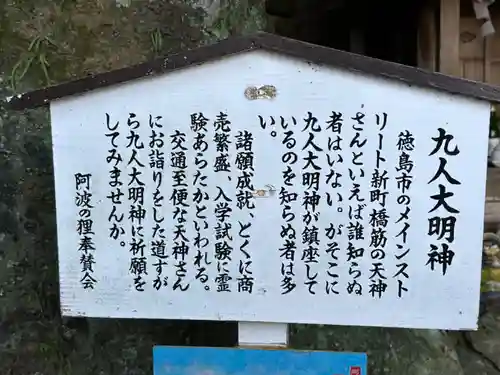 九人大明神
徳島市のメインスト
リート新町橋筋の天神
さんといえば誰知らぬ
者はいない。がそこに
九人大明神が鎮座して
いるのを知らぬ者は多
い。
諸願成就、とくに商
売繁盛、入学試験に霊
験あらたかといわれる。
交通至便な天神さん
にお詣りをした道すが
ら九人大明神に祈願を
してみませんか。
阿波の狸奉賛会